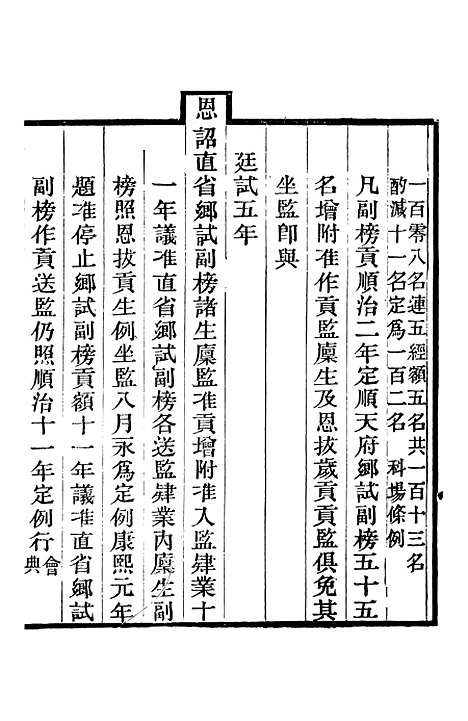 一百零八名連五經額五名共一百十三名
酌減十一名定爲一百二名　科場條例
凡副榜貢順治二年定順天府鄉試副榜五十五
名增附准作貢監廩生及恩拔歲貢貢監俱免其
坐監卽與
廷試五年
恩詔直省鄉試副榜諸生廩監准貢增附准入監肄業十
一年議准直省鄉試副榜各送監肄業內廩生副
榜照恩拔貢生例坐監八月永爲定例康熙元年
題准停止鄉試副榜貢額十一年議准直省鄉試
副榜作貢送監仍照順治十一年定例行會典